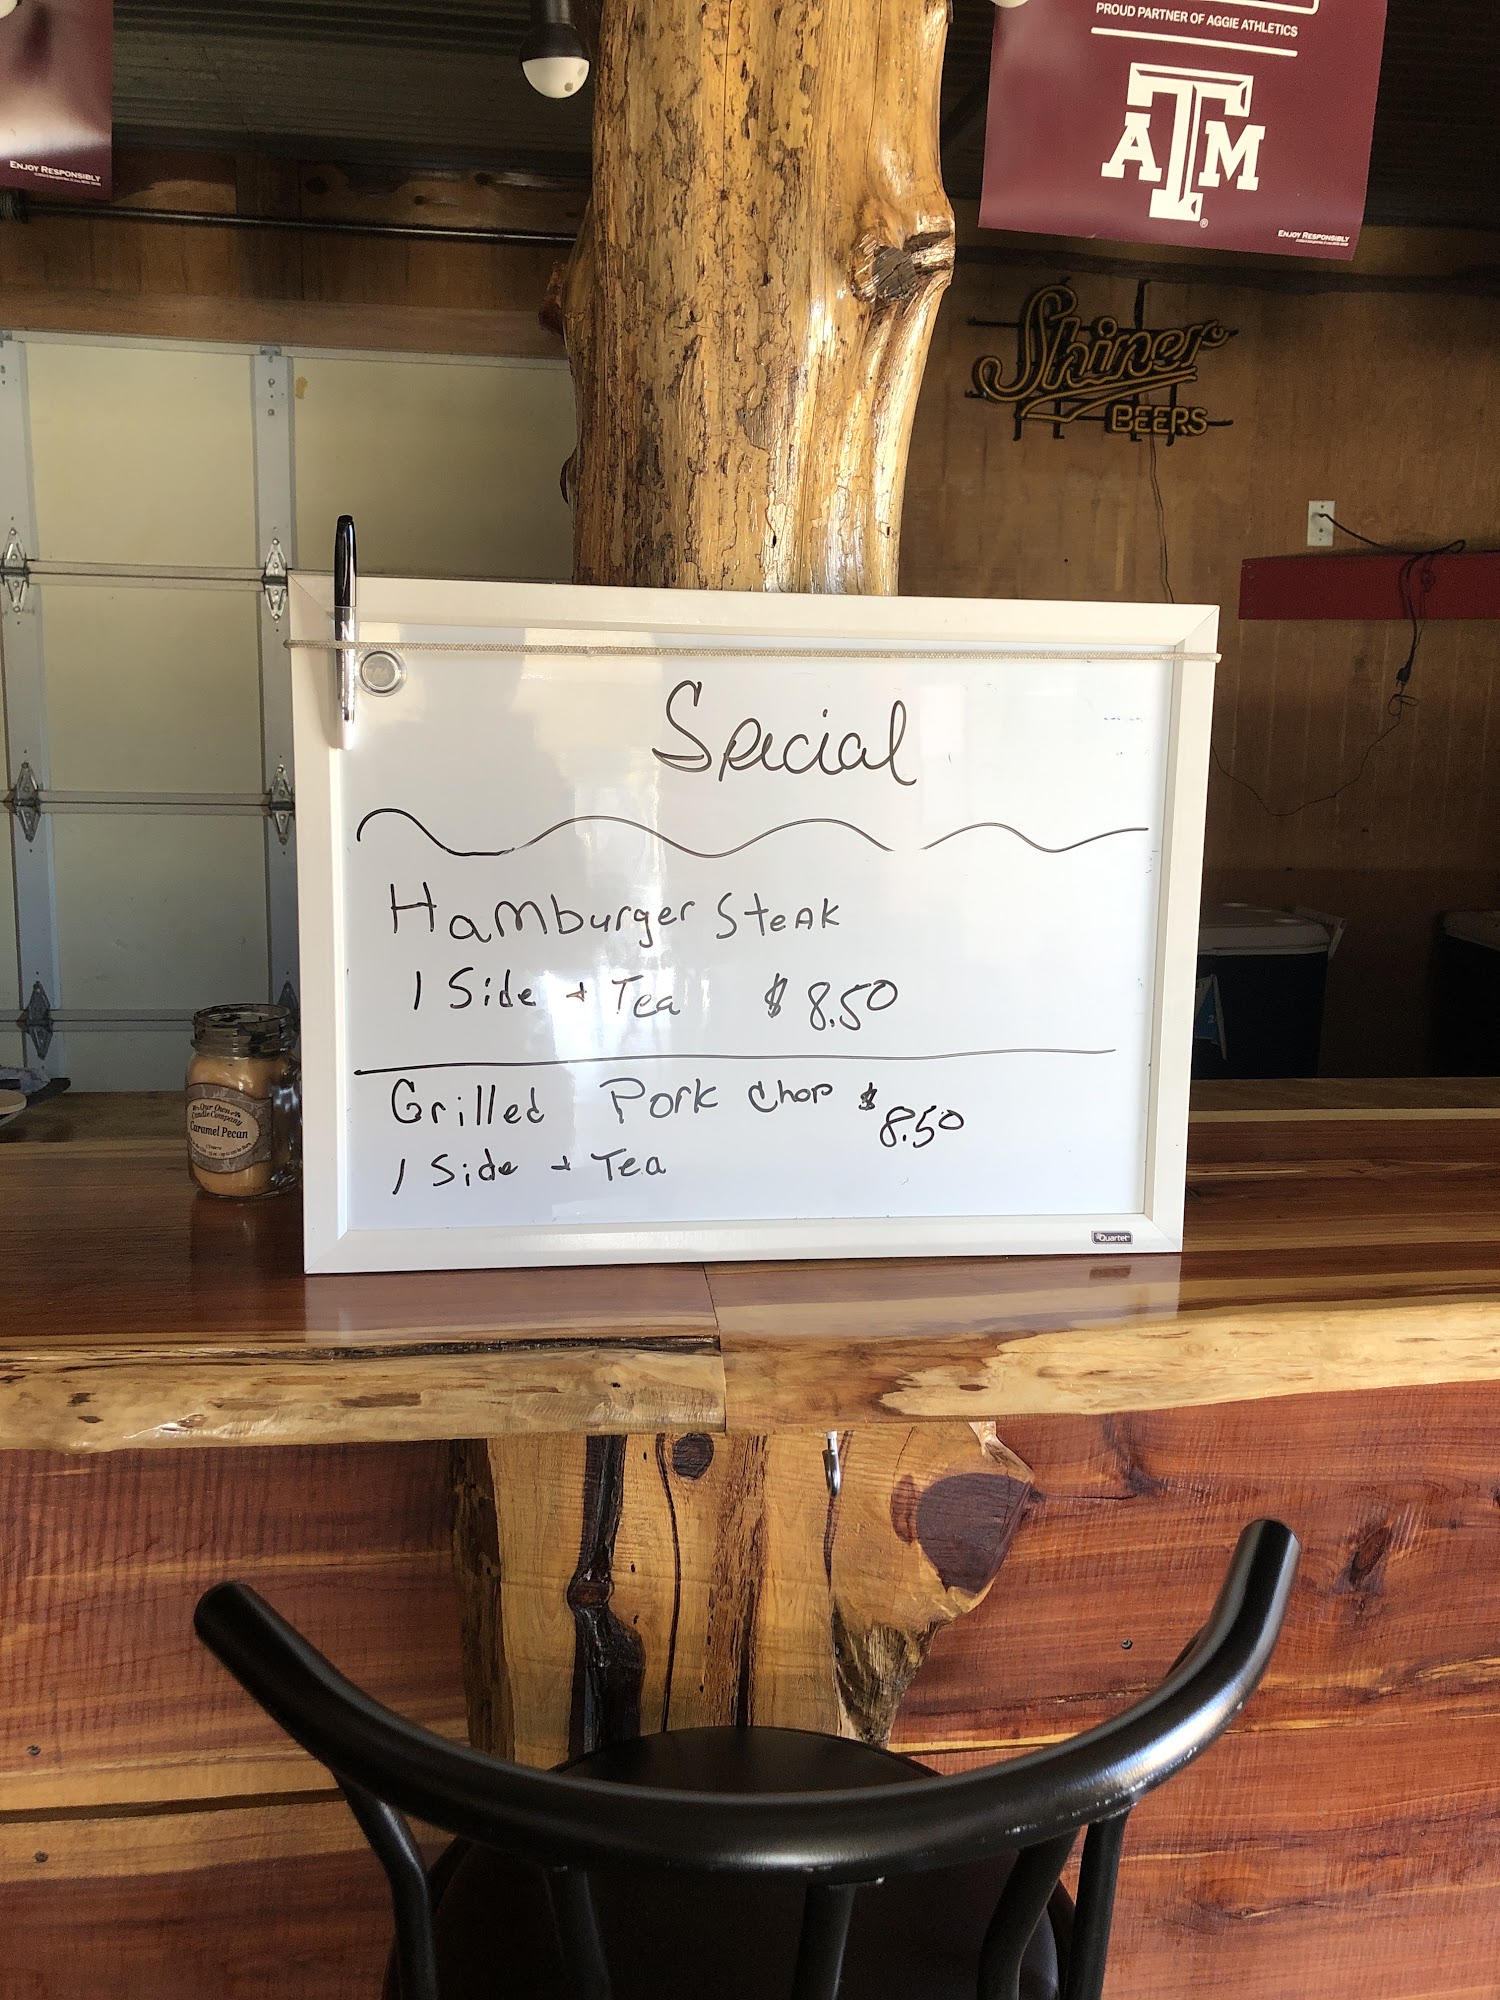 PROUD PARTNER OF AGGIE ATHLETICS
ATM
ENJOY RESPONSIBLY
ENJOY RESPONSIBLY
Shiner
BEERS
Special
Hamburger Steak
1 Side + Tea $8.50
Grilled Pork Chop $8.50
1 Side + Tea
Our Own
Candle Company
Caramel Pecan
Quartet